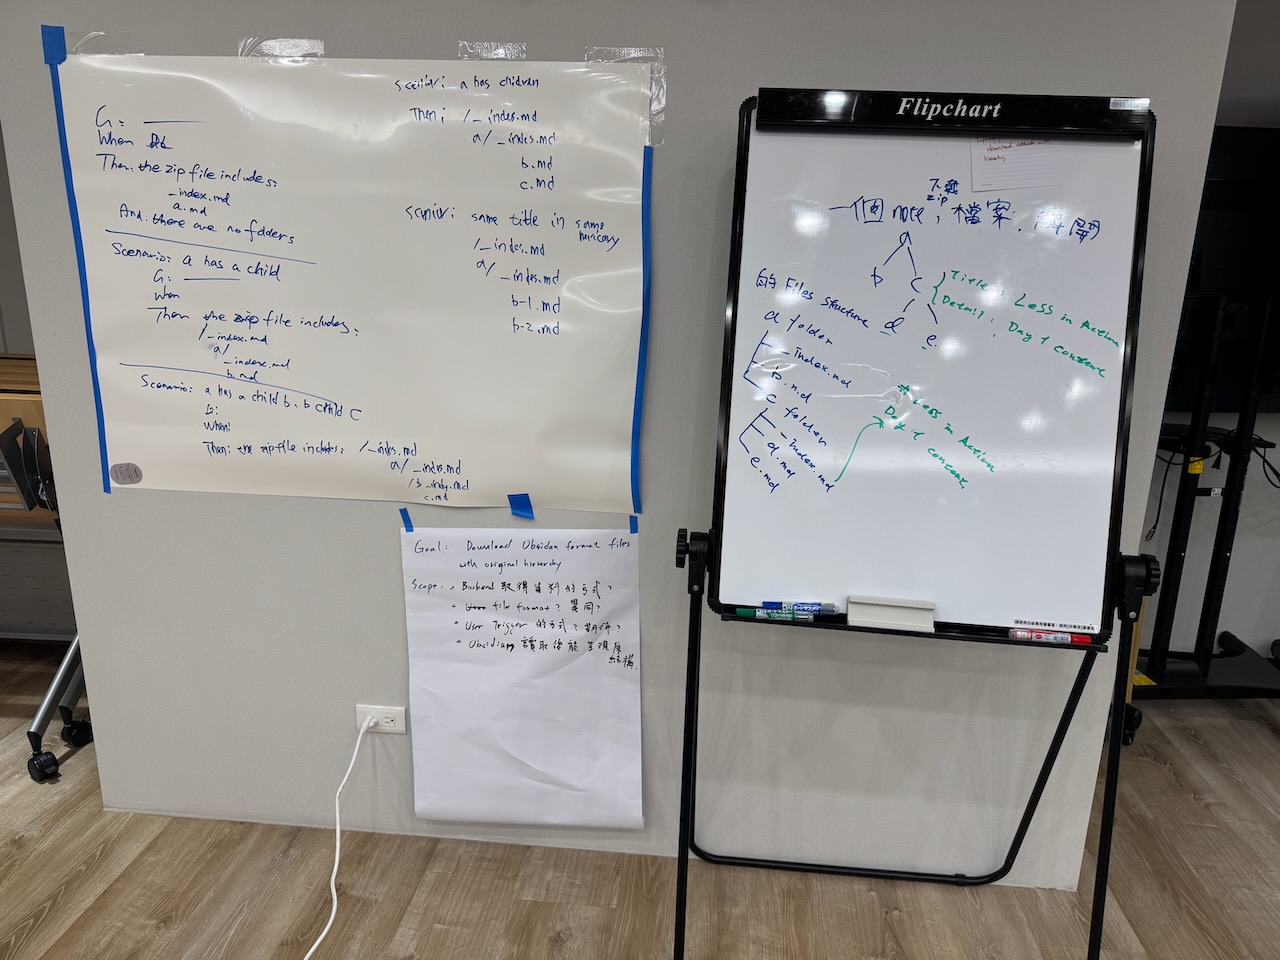 G:
When
Then: the zip file includes:
_index.md
a.md
And: there are no folders
Scenario: a has a child
G:
When
Then the zip file includes:
/_index.md
a/
_index.md
b.md
Scenario: a has a child b, b child c
G:
When:
Then: the zip file includes: /_index.md
a/_index.md
/b_index.md
c.md
a has children
Then: /_index.md
a/_index.md
b.md
c.md
same title in same
/_index.md
a/_index.md
b-1.md
b-2.md
Goal: Download Obsidian format files
with original hierarchy
Scope: Backend 取得資料的方式?
file format? 異同?
User Trigger 的方式?
Obsidian 讀取後能呈現原
結構.
Flipchart
下載
zip
一個 note, 檔案: 解開
a
b c
d e
的 Files structure
a folder
_index.md
b.md
c folder
_index.md
d.md
e.md
Title: Less in Action
Detail: Day 1 content
* Less in Action
Day 1 content